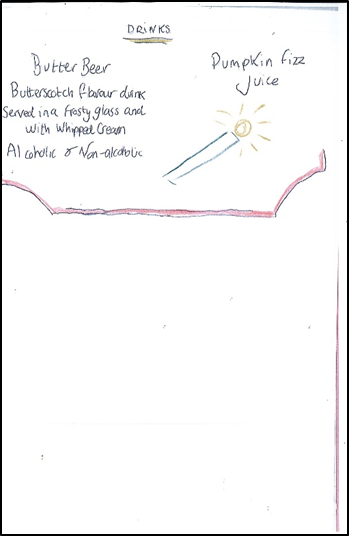 DRINKS
Butter Beer
Butterscotch flavour drink
Served in a frosty glass and
with whipped cream
Alcoholic or Non-alcoholic
Pumpkin fizz
Juice